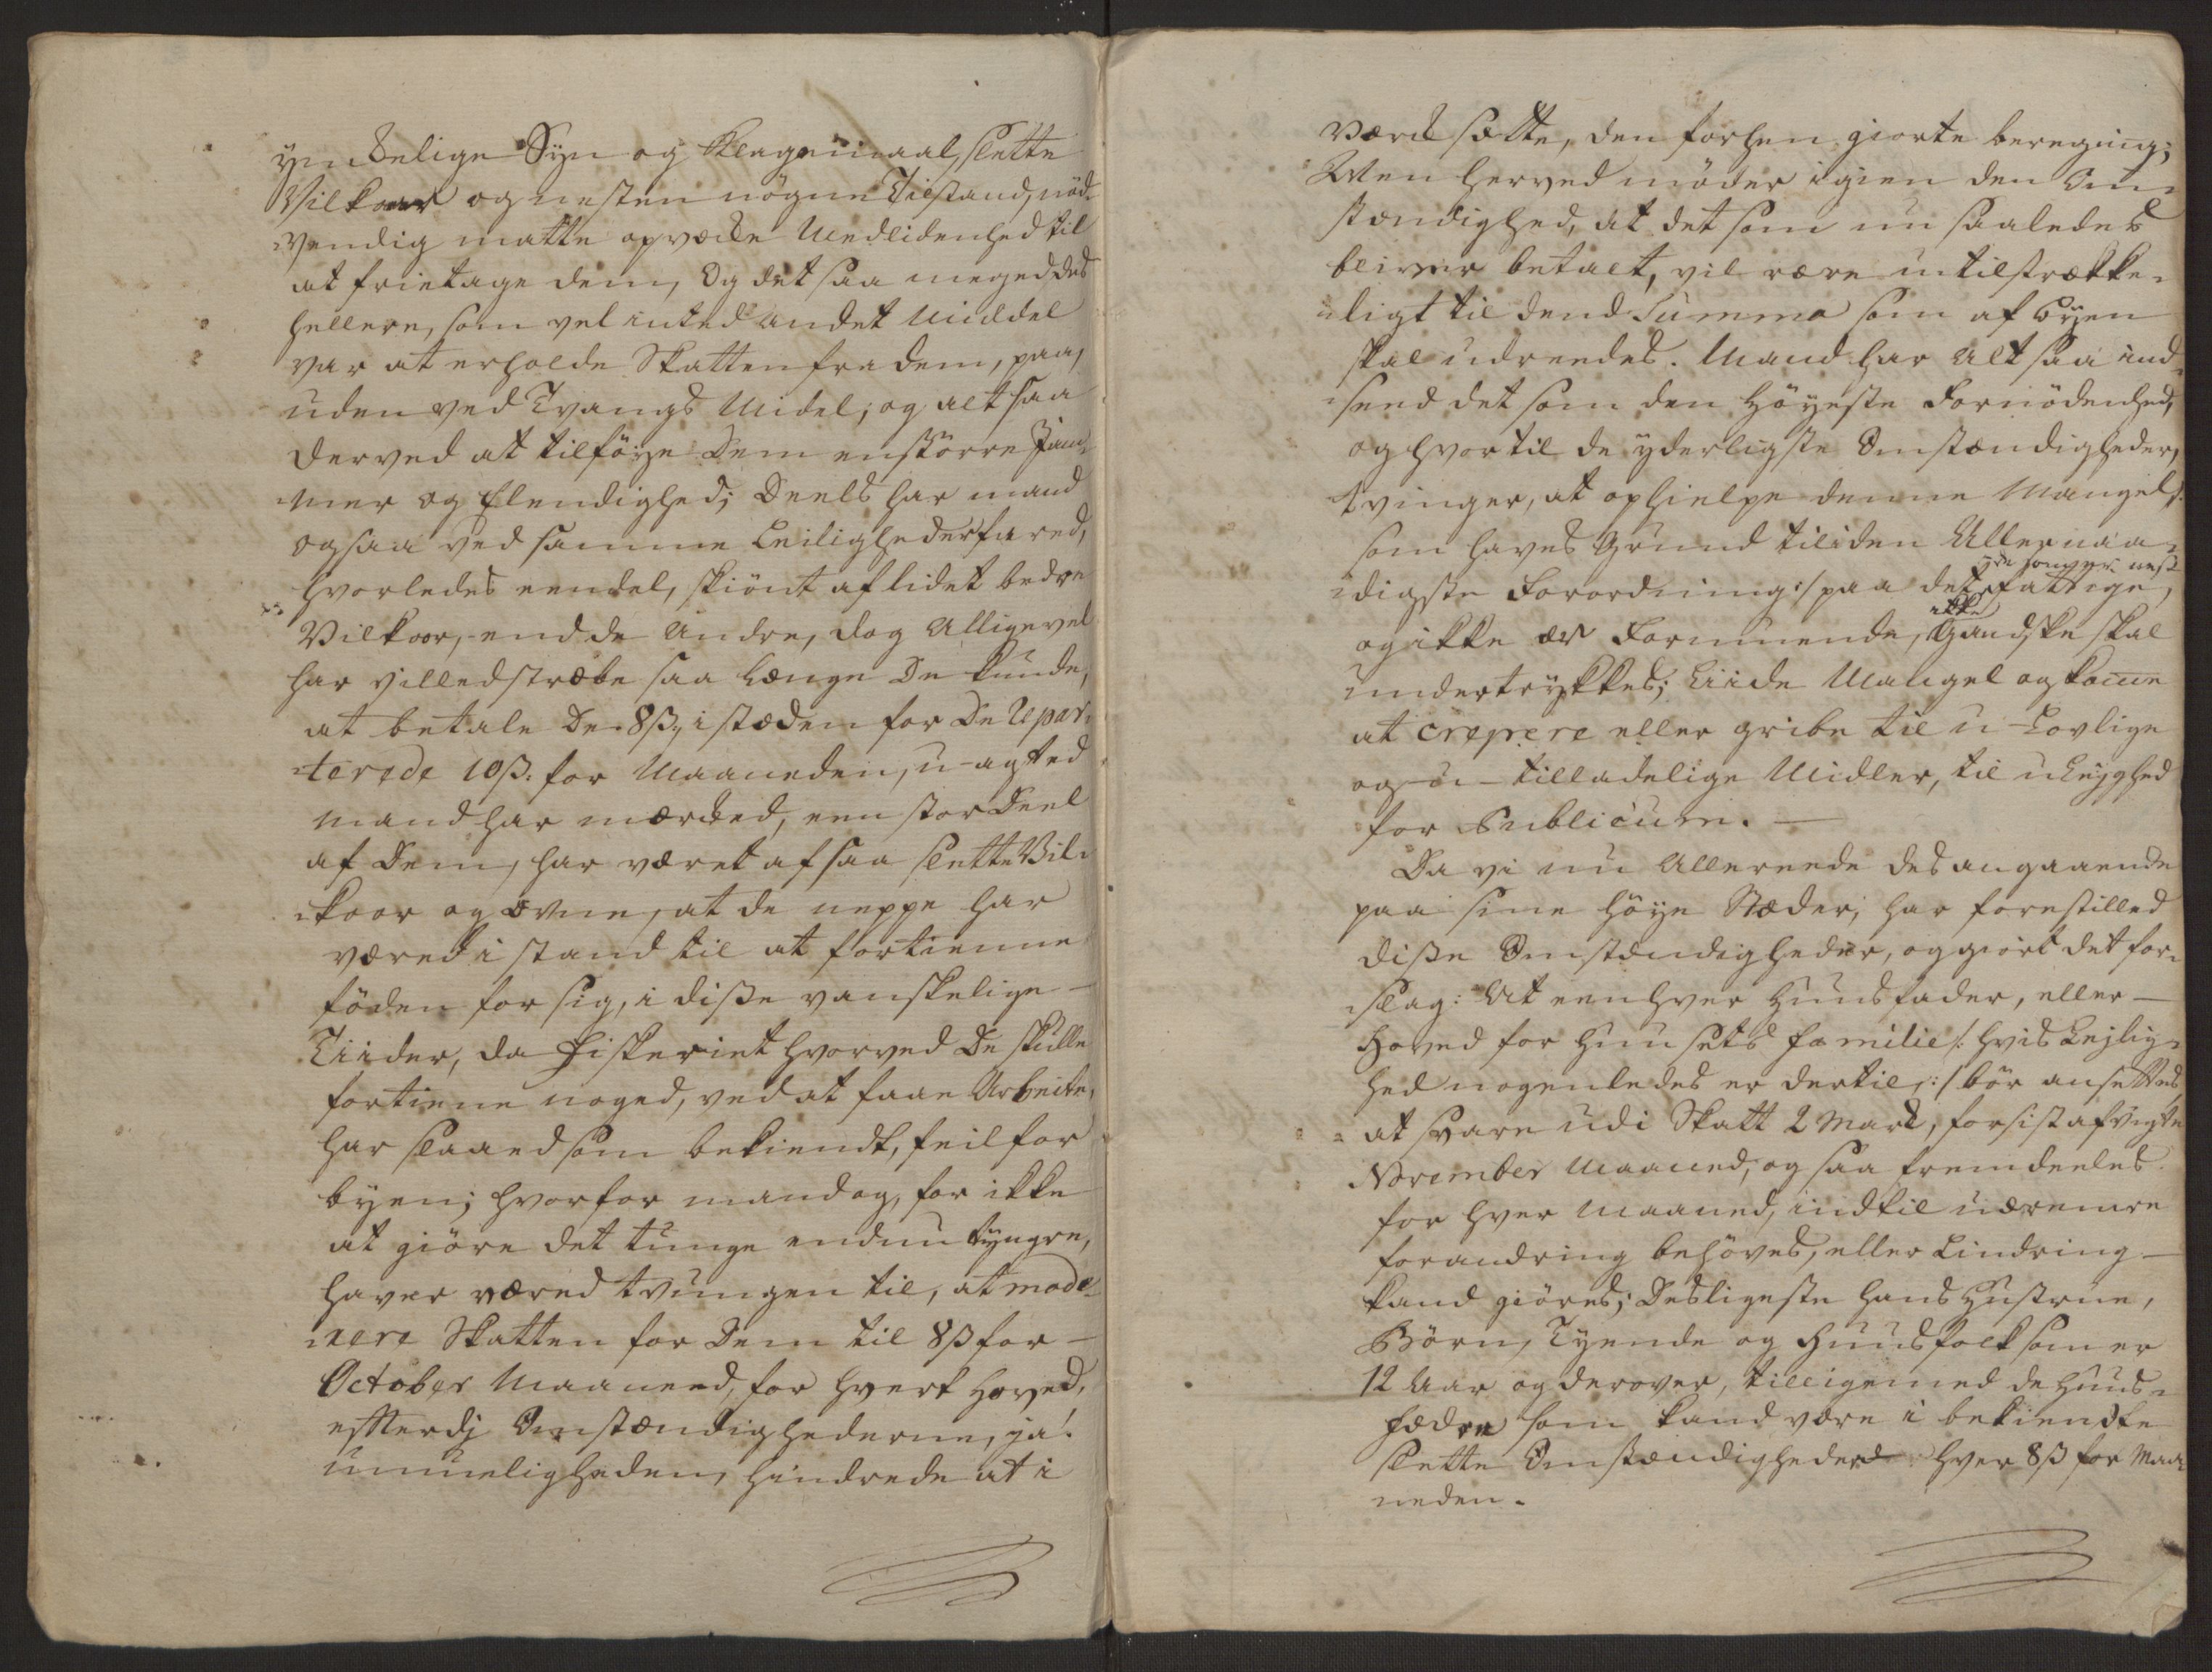 ynkelige Syn og Klagemaal, slette
Vilkoar og nesten nögne Tilstand, nöd-
vendig matte opvæcke Medlidenhed til
at frietage dem, Og det saa meged des
hellere, som vel inted andet Middel
var at erholde Skatten fra dem, paa,
uden ved Tvangs Midel; og alt saa
derved at tilföye Dem en större Jam-
mer og Elendighed; Deels har mand
ogsaa ved samme Leilighed erfared,
hvorledes eendel, skiönt af lidet bedre
Vilkoor, end de Andre, dog Alligevel
har villed stræbe saa længe De kunde,
at betale De 8ß, i stæden for De Repar-
terede 10ß. for Maaneden, u-agted
mand har mærcked, een stor Deel
af Dem, har været af saa slette Vil-
koor og ævne, at de neppe har
væred i stand til at fortienne
föden for sig, i diße vanskelige
Tiider, da Fiskeriet hvorved De skulle
fortiene noged, ved at faae Arbeide,
har slaaed som bekiendt, feil for
byen; hvorfor mand og, for ikke
at giöre det tunge endnu tyngre,
haver væred tvungen til, at mode-
rere Skatten for Dem til 8ß for
October Maaneed, for hvert Hoved,
efterdj Omstændighederne, ja!
umueligheden, hindrede at i
Værck sætte, den forhen giorte bereging;
Men herved möder igien den Om-
stændighed, at det som nu saaledes
bliver betalt, vil være utilstrække-
ligt til dend Summa som af Byen
skal udreedes. Mand har alt saa ind-
seed det som den Höyeste Fornödenhed,
og hvortil de yderligste Omstændigheder,
tvinger, at ophielpe denne Mangel /:
som haves Grund til i den Allernaa-
digste Forordning :/ paa det
yre som er mest
fattige,
og ikke er Formuende, ikke Gandske skal
undertrykkes; Liide Mangel og kome
at crepere eller gribe til u-Lovlige
og u-tilladelige Midler, til uLejghed
for Publicum.
Da vi nu Allereede des angaaende
paa sine höye Stæder, har forestilled
diße Omstændigheder, og giort det for-
slag: At eenhver Huusfader, eller
Hoved for Huusets Familie /: hvis Lejlig-
hed nogenledes er dertil :/ bör ansettes,
at svare udi Skatt 2 Marck, for sist afvigte
November Maaned, og saa fremdeeles
for hver Maaned, indtil nærmere
forandring behöves, eller Lindring
kand giöres; Desligeste hans Hustrue,
Börn, Tyende og Huusfolk som er
12 Aar og derover, tilligemed de Huus-
fædre som kand være i bekiendte
slette Omstændigheder hver 8ß for Maa-
neden.